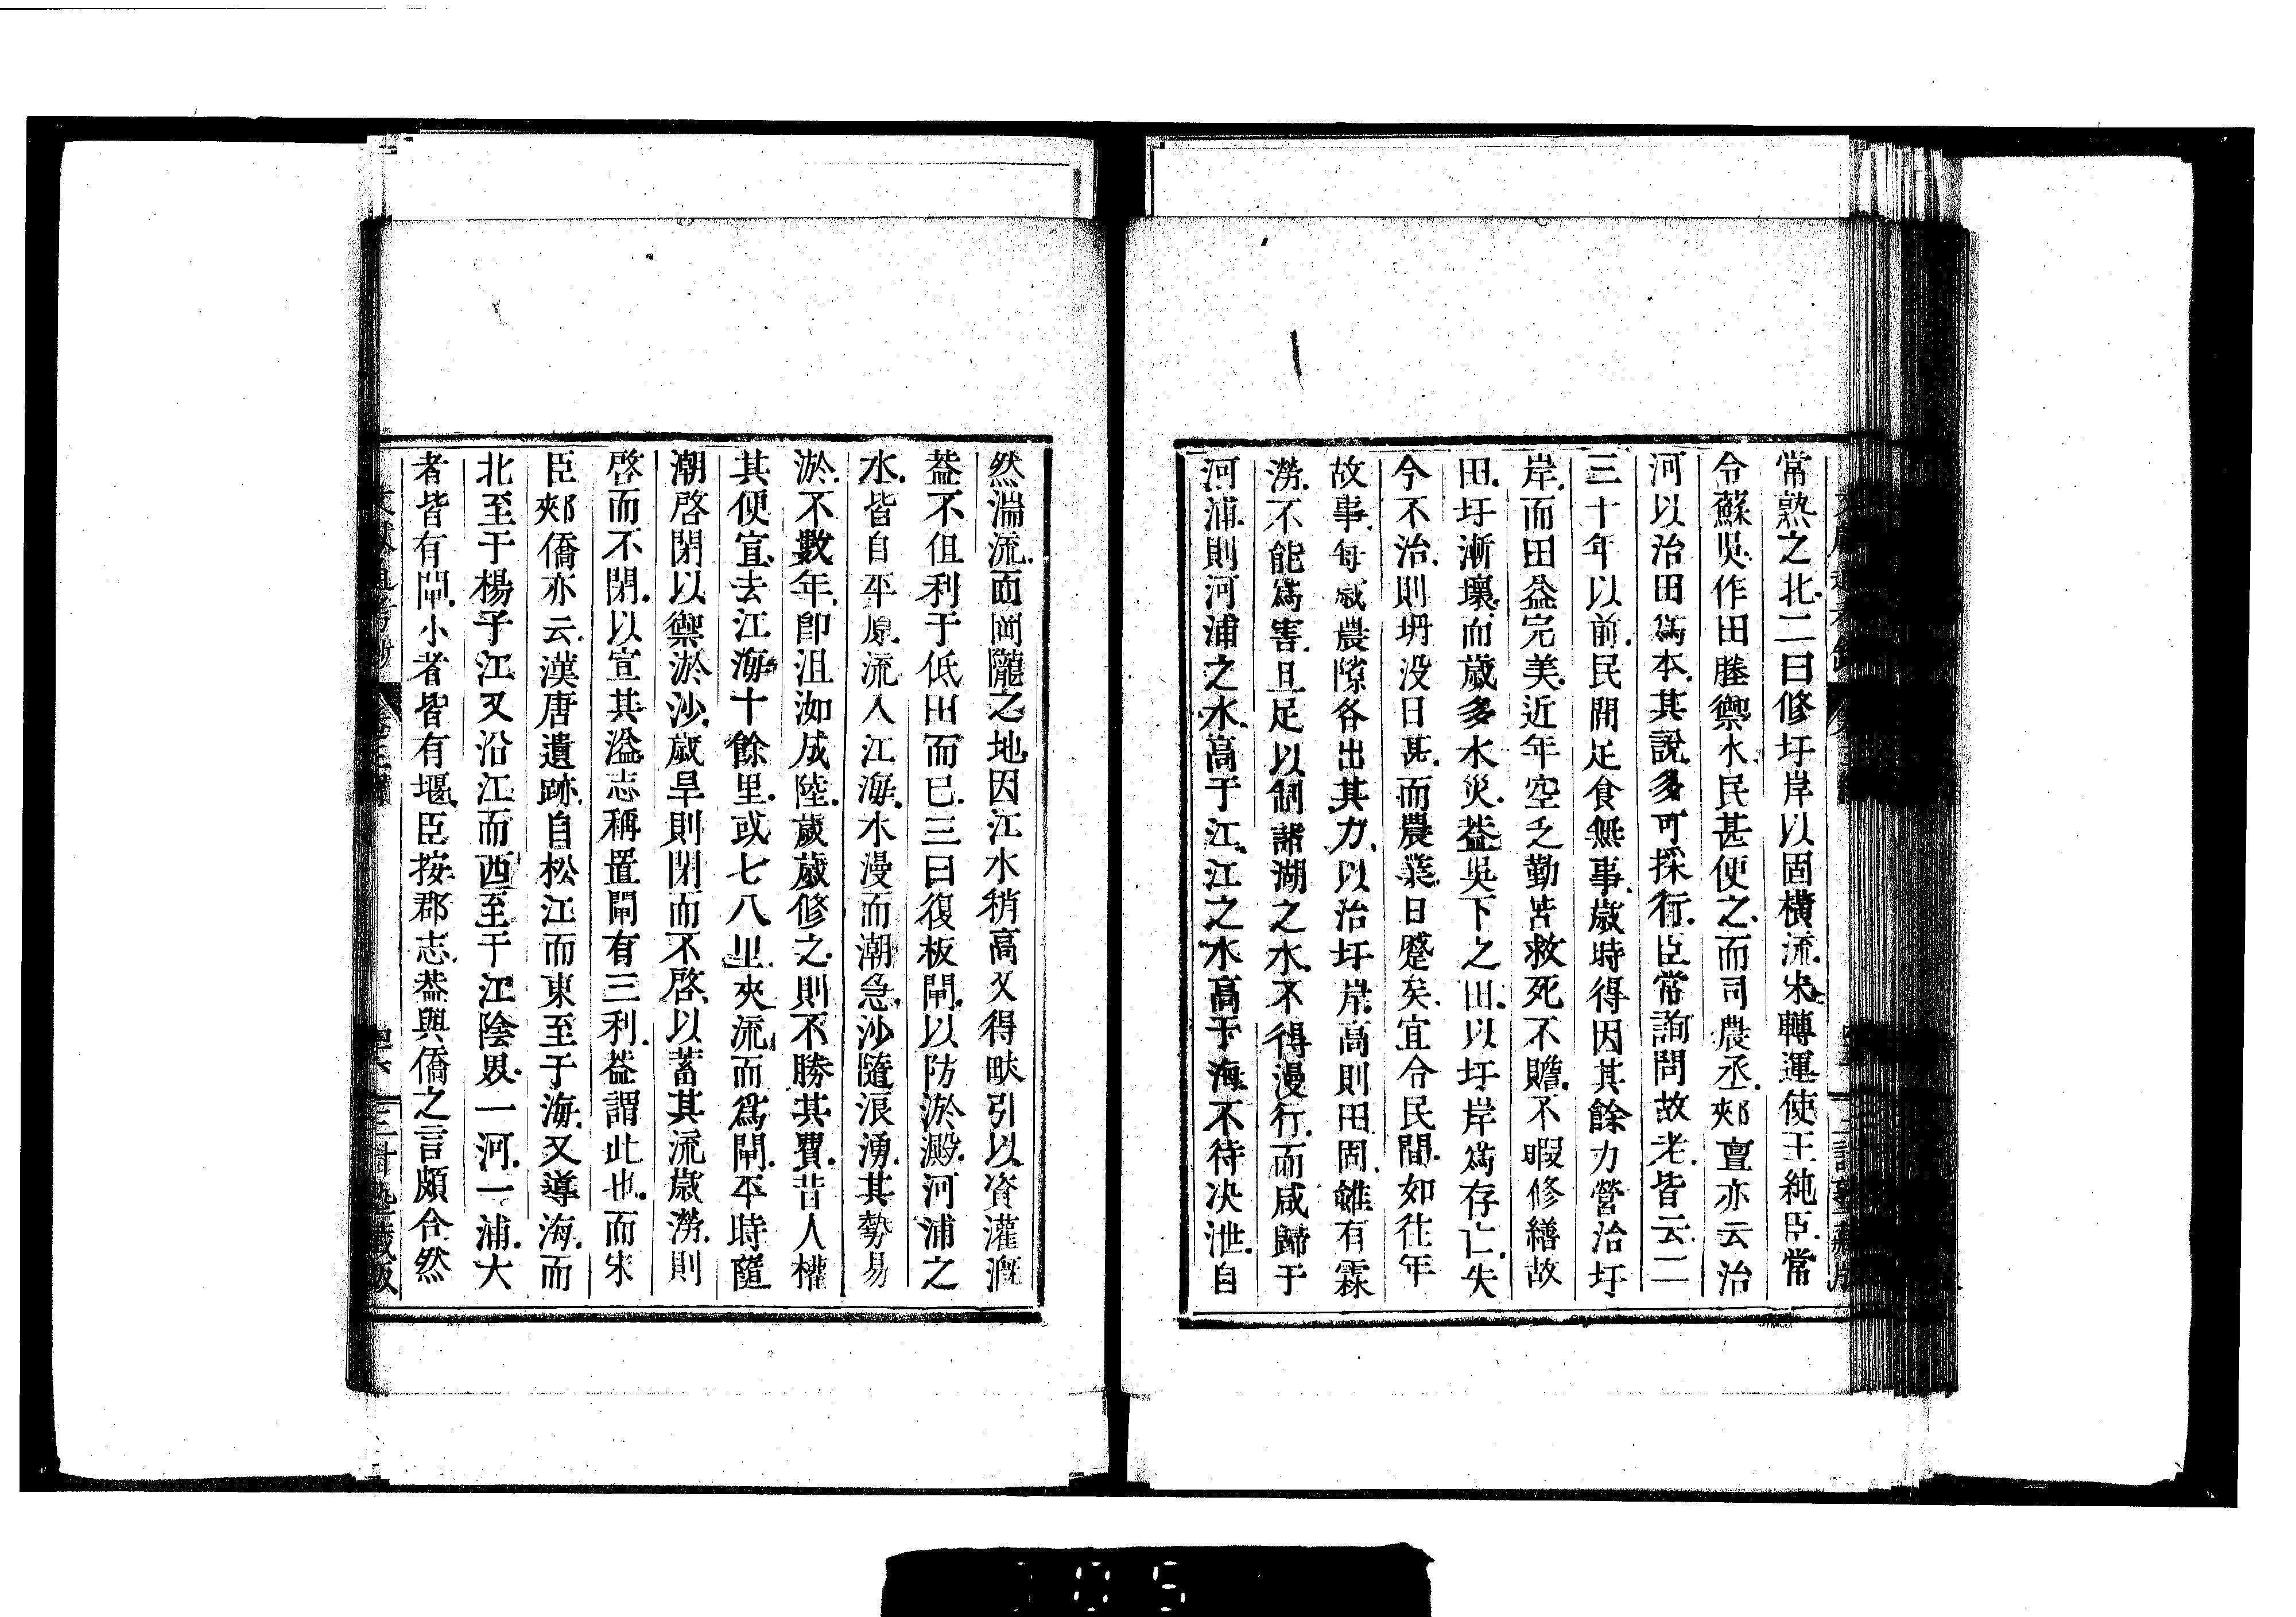 常熟之北二曰修圩岸以固橫流宋轉運使王純臣常
令蘇吳作田塍禦水民甚便之而司農丞郟亶亦云治
河以治田爲本其說多可採行臣常詢問故老皆云二
三十年以前民間足食無事歲時得因其餘力營治圩
岸而田益完美近年空乏勤苦救死不贍不暇修繕故
田圩漸壞而歲多水災葢吳下之田以圩岸爲存亡失
今不治則坍没日甚而農業日蹙矣宜令民間如往年
故事每歲農隙各出其力以治圩岸高則田固雖有霖
澇不能爲害且足以制諸湖之水不得漫行而咸歸于
河浦則河浦之水高于江江之水高于海不待决泄自
然湍流而岡隴之地因江水稍高又得畎引以資灌漑
葢不但利于低田而已三曰復板閘以防淤澱河浦之
水皆自平原流入江海水漫而潮急沙隨浪湧其勢易
淤不數年卽沮洳成陸歲歲修之則不勝其費昔人權
其便宜去江海十餘里或七八里夾流而爲閘平時隨
潮啓閉以禦淤沙歲旱則閉而不啓以蓄其流歲澇則
啓而不閉以宣其溢志稱置閘有三利葢謂此也而宋
臣郟僑亦云漢唐遺跡自松江而東至于海又導海而
北至于楊子江又沿江而西至于江陰界一河一浦大
者皆有閘小者皆有堰臣按郡志葢與僑之言頗合然